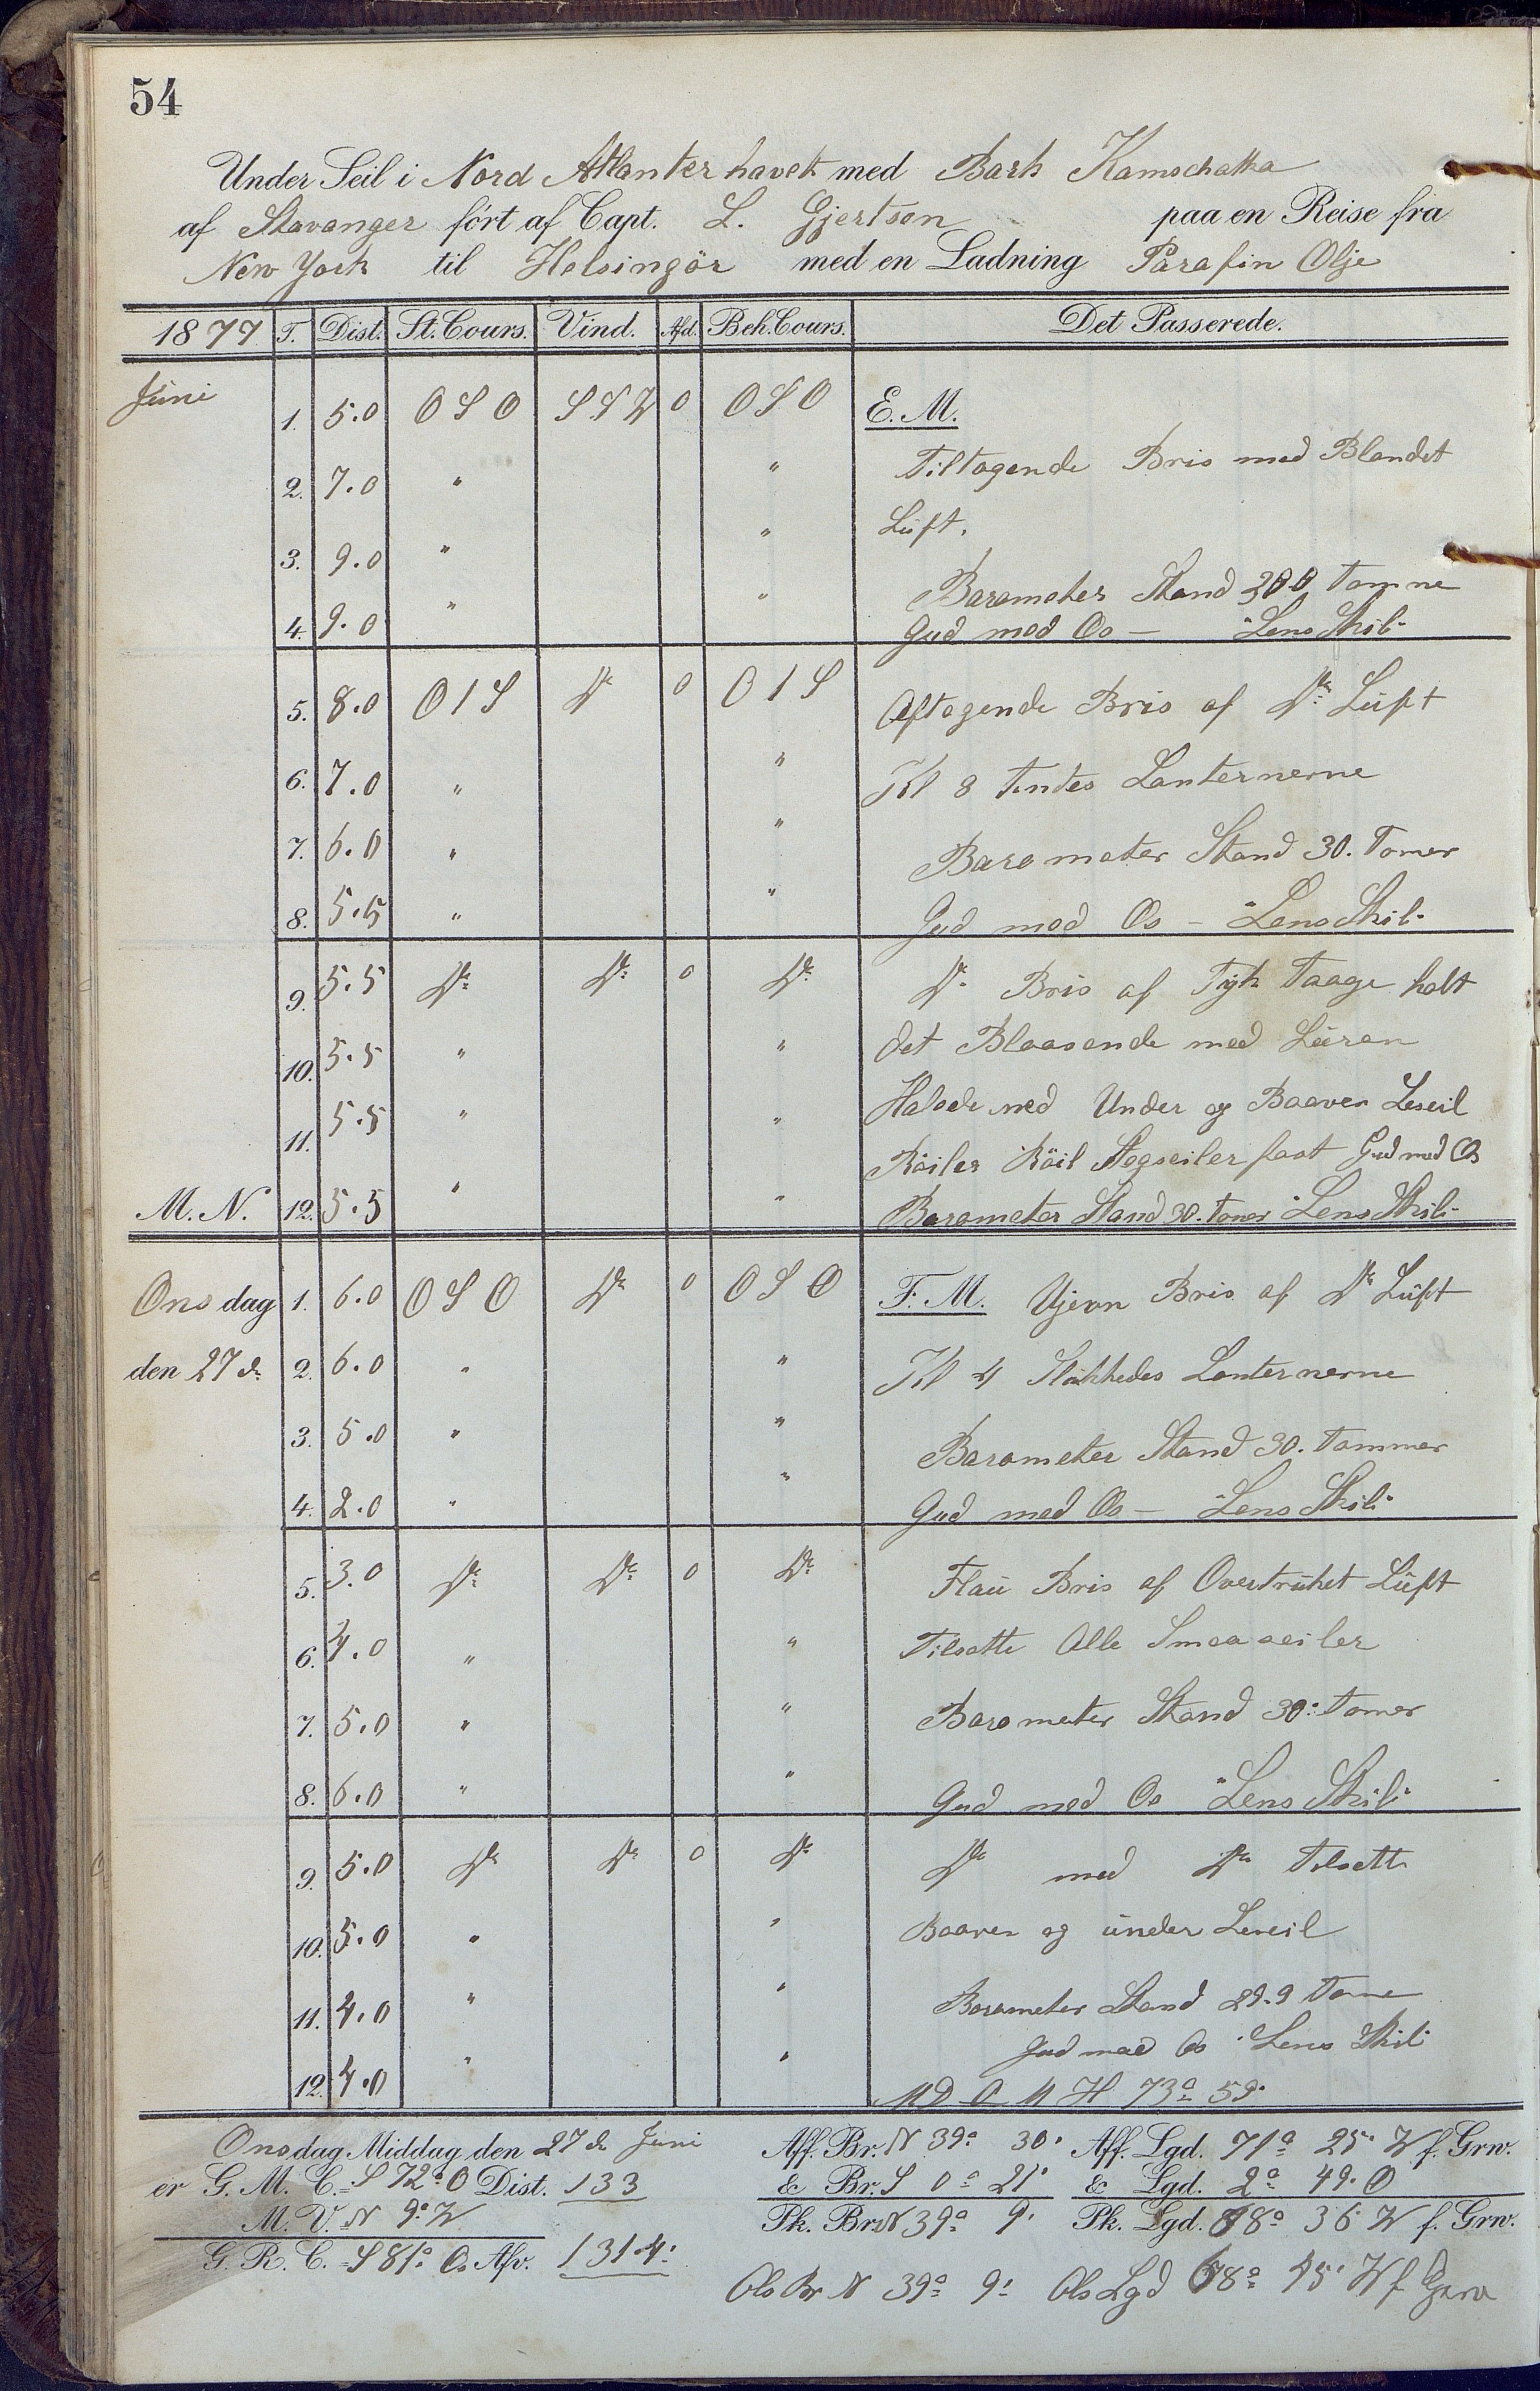 54
Under Seil i Nord Atlanterhavet med Bark Kamschatka
af Stavanger ført af Capt. L. Gjertsen paa en Reise fra
New York til Helsingør med en Ladning Parafin Olje
1877 T. Dist. St. Cours. Vind. Afd. Beh. Cours. Det Passerede.
Juni 1. 5.0 OSO SSW 0 OSO E. M.
2. 7.0 " " Tiltagende Bris med Blandet
3. 9.0 " " Luft.
Barometer Stand 30.0 Tomme
4. 9.0 " " Gud med Os — "Lens Skib"
5. 8.0 O1S Do 0 O1S Aftagende Bris af Do Luft
6. 7.0 " " Kl 8 Tendtes Lanternerne
7. 6.0 " " Barometer Stand 30. Tomer
8. 5.5 " " Gud med Os — "Lens Skib"
9. 5.5 Do Do 0 Do Do Bris af Tyk Taage holt
10. 5.5 " " det Blaasende med Luren
11. 5.5 " " Halede ned Under og Baaven Leseil
Röiler Röil Stagseiler fast Gud med Os
M. N. 12. 5.5 " " Barometer Stand 30. Tomer "Lens Skib"
Onsdag 1. 6.0 OSO Do 0 OSO F. M. Ujevn Bris af Do Luft
den 27de 2. 6.0 " " Kl 4 Slukkedes Lanternerne
3. 5.0 " " Barometer Stand 30. Tommer
4. 2.0 " " Gud med Os — "Lens Skib"
5. 3.0 Do Do 0 Do Flau Bris af Overtruket Luft
6. 4.0 " " Tilsatte Alle Smaaseiler
7. 5.0 " " Barometer Stand 30: Tomer
8. 6.0 " " Gud med Os "Lens Skib"
9. 5.0 Do Do 0 Do Do med Do Tilsatte
10. 5.0 " " Baaven og under Leseil
11. 4.0 " " Barometer Stand 29.9 Tome
Gud med Os "Lens Skib"
12. 4.0 " " M D O M H 73° 59'
Onsdag Middag den 27de Juni Aff. Br. N 39° 30' Aff. Lgd. 71° 25' W f. Grw.
er G. M. C. = S 72° O Dist. 133 & Br. S 0° 21' & Lgd. 2° 49' O
M. V. = N 9° W Pk. Br. N 39° 9' Pk. Lgd. 68° 36' W f. Grw.
G. R. C. = S 81° O. Afv. 131.4'
Obs Br N 39° 9' Obs Lgd 68° 45' W f Grw